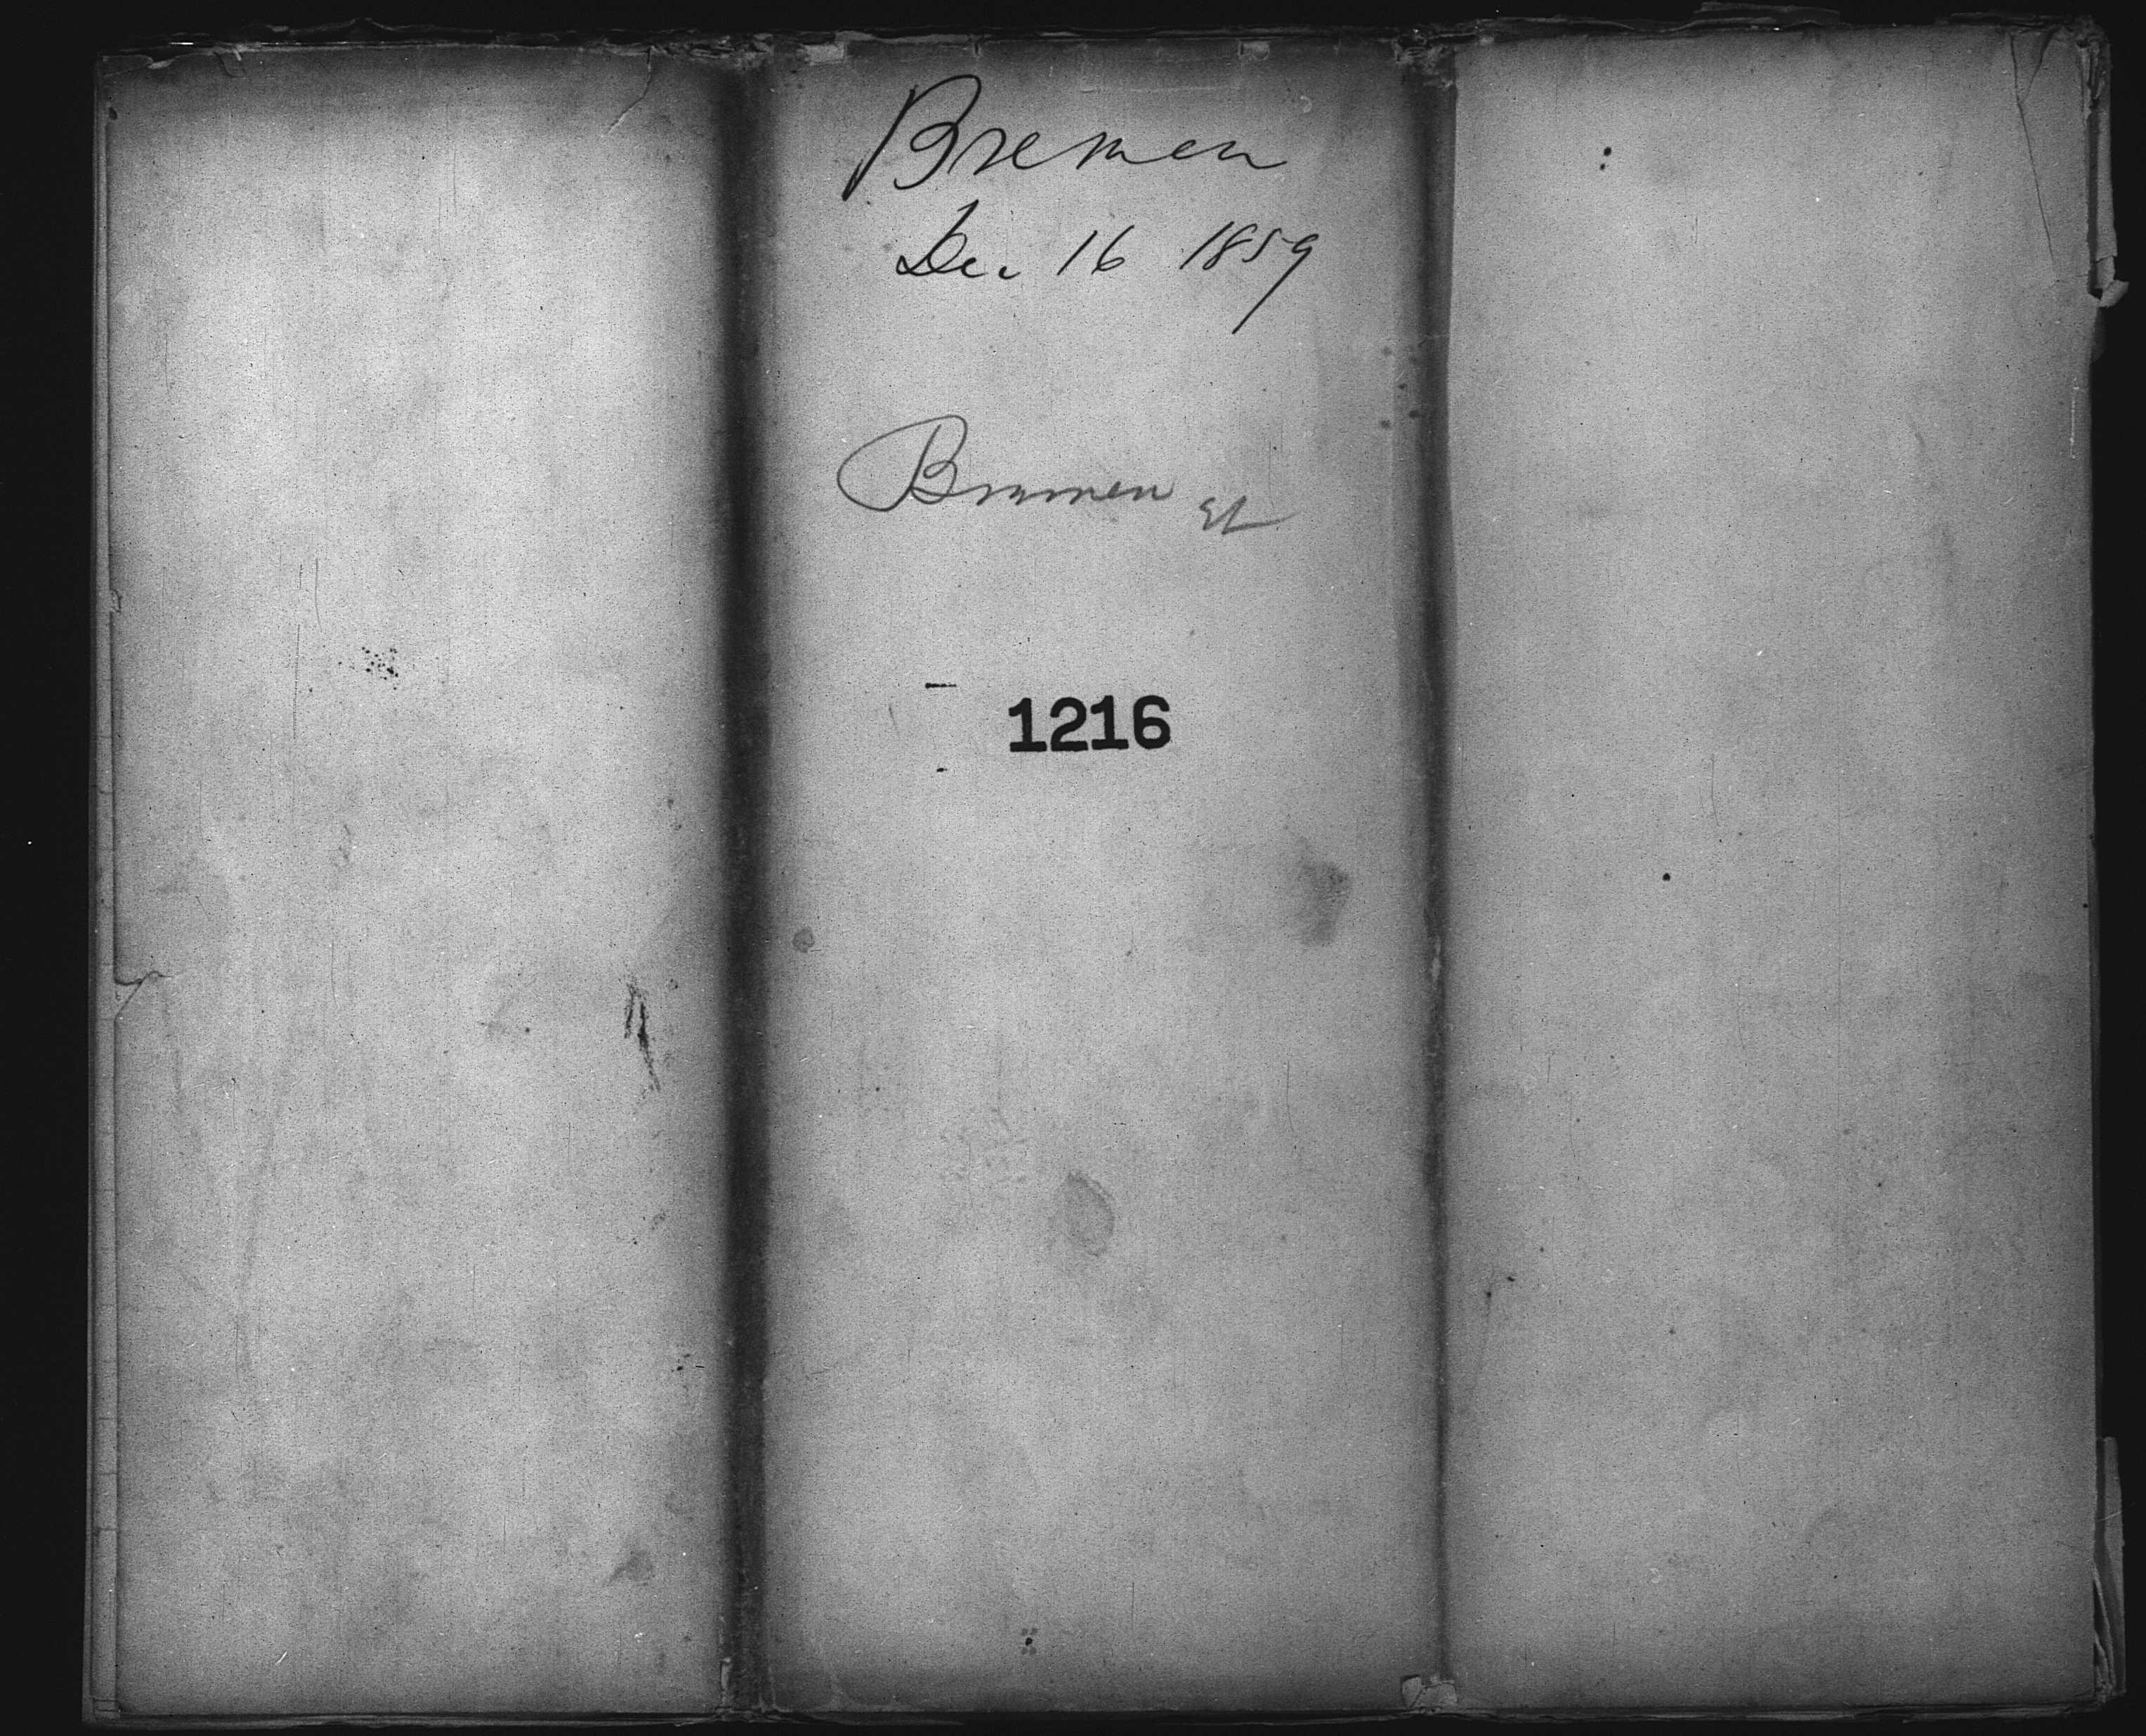 Bremen
Dec 16 1859
Bremen
1216